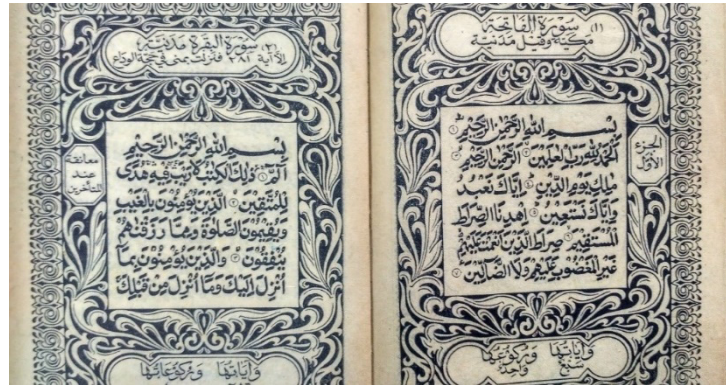 (١) سُورَةُ الفَاتِحَةِ
مَكِّيَّة وَقِيلَ مَدَنِيَّة
بِسْمِ اللهِ الرَّحْمٰنِ الرَّحِيْمِ ١
اَلْحَمْدُ لِلّٰهِ رَبِّ الْعٰلَمِيْنَ ٢ الرَّحْمٰنِ الرَّحِيْمِ ٣
مٰلِكِ يَوْمِ الدِّيْنِ ٤ اِيَّاكَ نَعْبُدُ
وَاِيَّاكَ نَسْتَعِيْنُ ٥ اِهْدِنَا الصِّرَاطَ
الْمُسْتَقِيْمَ ٦ صِرَاطَ الَّذِيْنَ اَنْعَمْتَ عَلَيْهِمْ
غَيْرِ الْمَغْضُوْبِ عَلَيْهِمْ وَلَا الضَّآلِّيْنَ ٧
الجزء
الأول
وَآيَاتُهَا سبع وَرُكُوعُهَا واحد
(٢) سُورَةُ البَقَرَةِ مَدَنِيَّة
إلا آية ٢٨١ فنزلت بمنى في حجة الوداع
بِسْمِ اللهِ الرَّحْمٰنِ الرَّحِيْمِ
الٓمّٓ ١ ذٰلِكَ الْكِتٰبُ لَا رَيْبَ فِيْهِ هُدًى
لِّلْمُتَّقِيْنَ ٢ الَّذِيْنَ يُؤْمِنُوْنَ بِالْغَيْبِ
وَيُقِيْمُوْنَ الصَّلٰوةَ وَمِمَّا رَزَقْنٰهُمْ
يُنْفِقُوْنَ ٣ وَالَّذِيْنَ يُؤْمِنُوْنَ بِمَا
اُنْزِلَ اِلَيْكَ وَمَا اُنْزِلَ مِنْ قَبْلِكَ
معانقة
عند
المتأخرين
وَآيَاتُهَا وَرُكُوعَاتُهَا